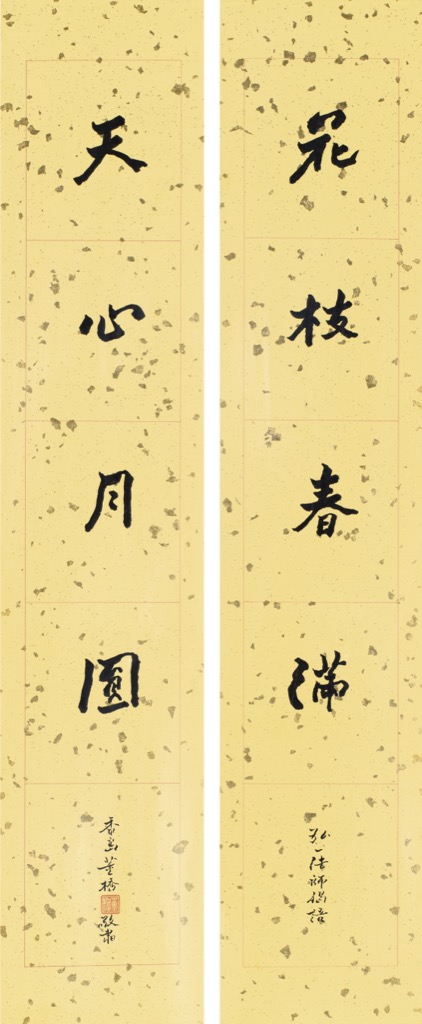 花枝春滿
弘一法師偈語
天心月圓
香島董橋敬書